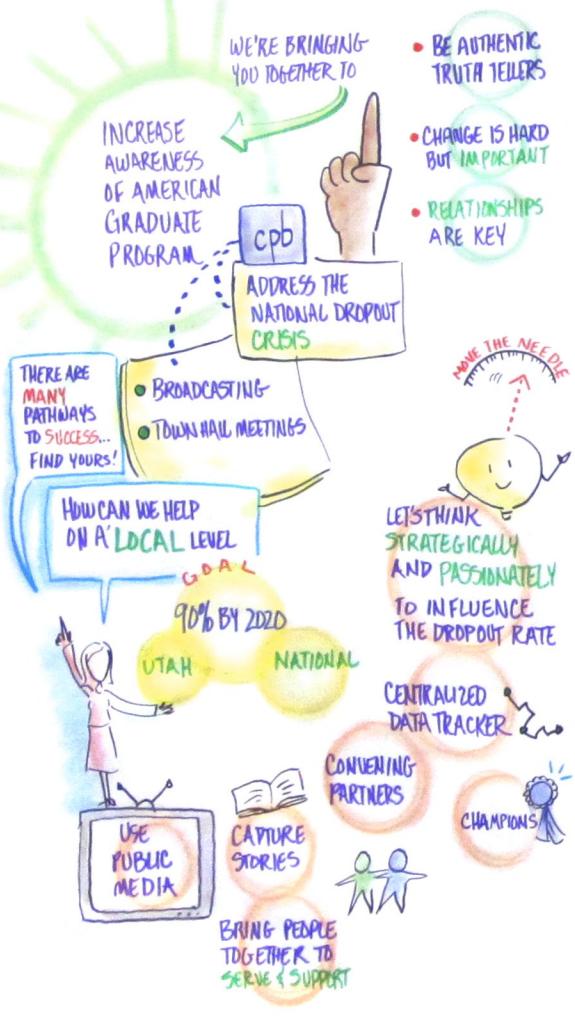 WE'RE BRINGING
YOU TOGETHER TO
INCREASE
AWARENESS
OF AMERICAN
GRADUATE
PROGRAM
• BE AUTHENTIC
TRUTH TELLERS
• CHANGE IS HARD
BUT IMPORTANT
• RELATIONSHIPS
ARE KEY
cpb
ADDRESS THE
NATIONAL DROPOUT
CRISIS
• BROADCASTING
• TOWN HALL MEETINGS
THERE ARE
MANY
PATHWAYS
TO SUCCESS...
FIND YOURS!
HOW CAN WE HELP
ON A LOCAL LEVEL
GOAL
90% BY 2020
UTAH
NATIONAL
MOVE THE NEEDLE
LET'S THINK
STRATEGICALLY
AND PASSIONATELY
TO INFLUENCE
THE DROPOUT RATE
CENTRALIZED
DATA TRACKER
CONVENING
PARTNERS
CHAMPIONS
USE
PUBLIC
MEDIA
CAPTURE
STORIES
BRING PEOPLE
TOGETHER TO
SERVE & SUPPORT